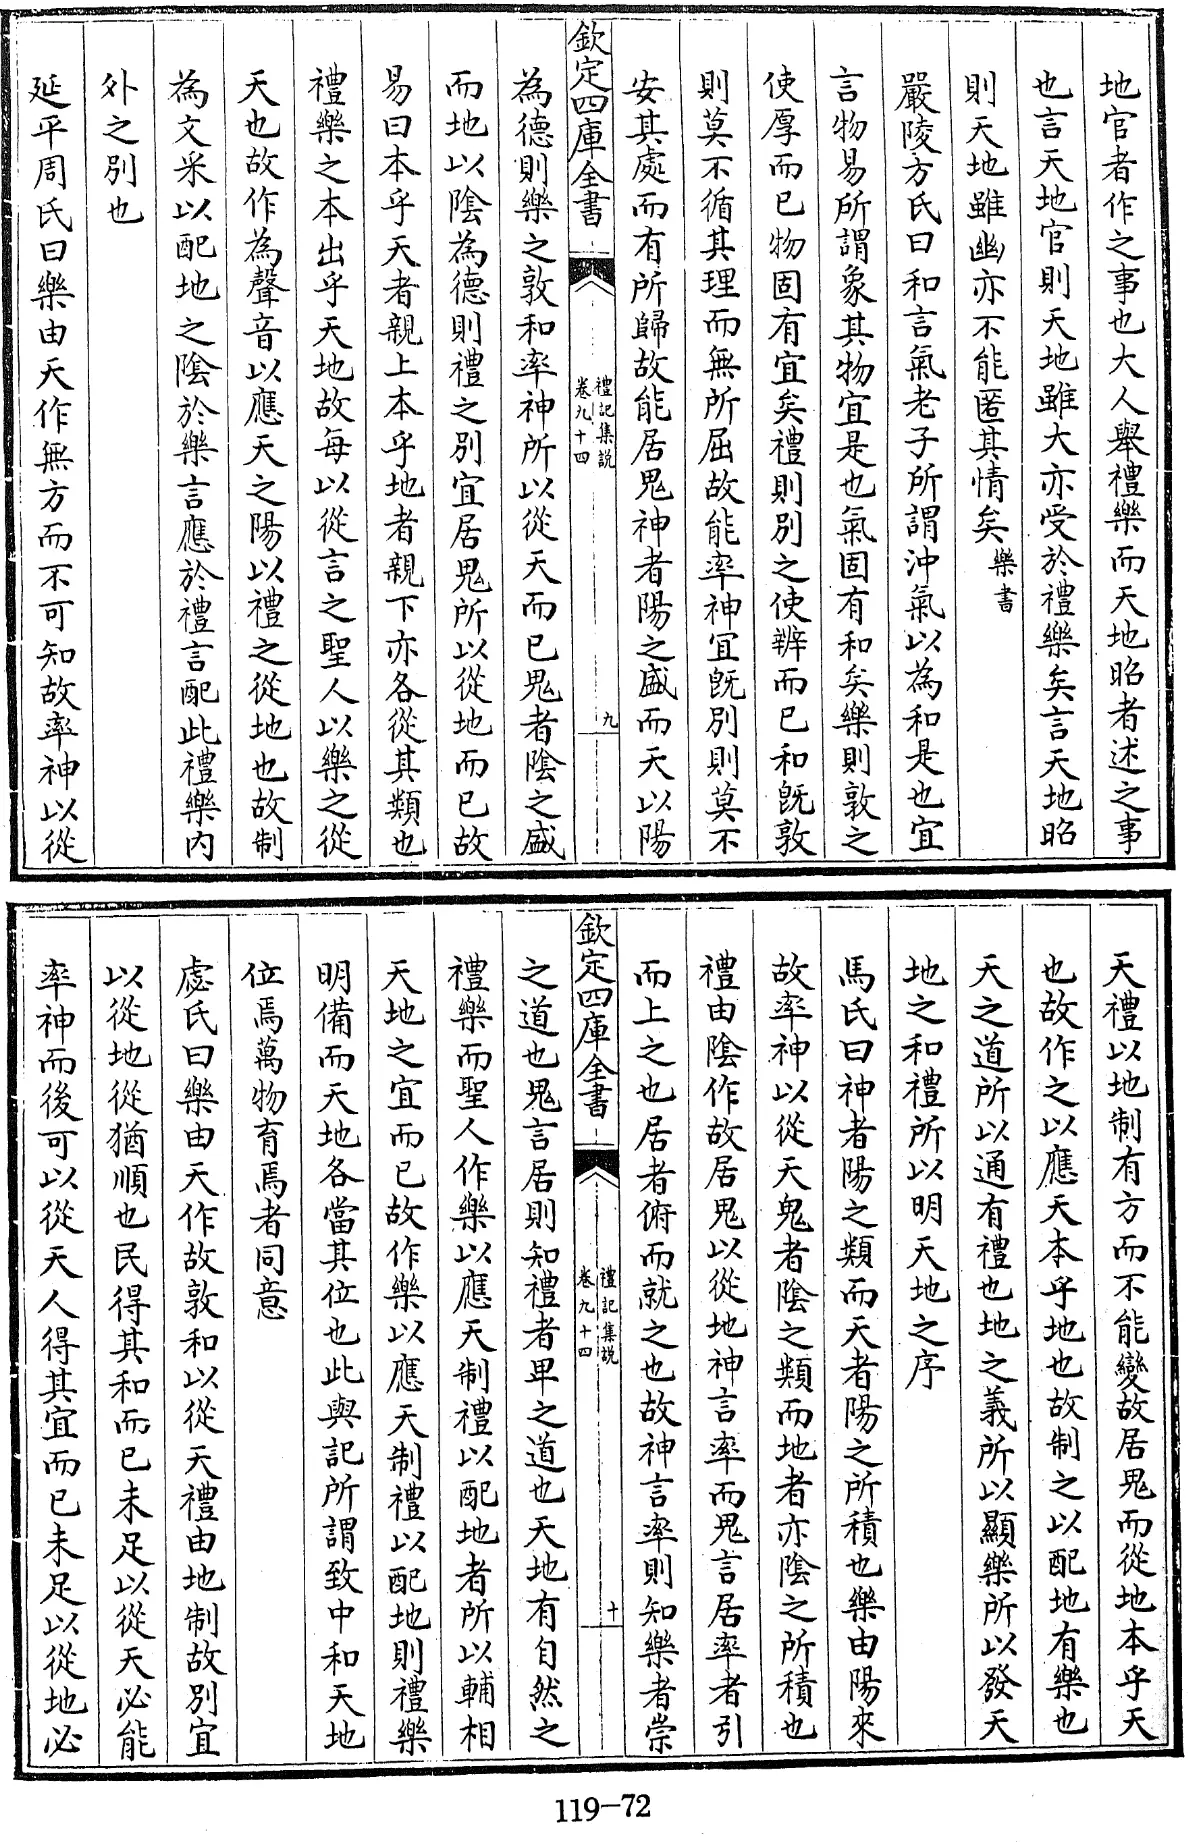 地官者作之事也大人舉禮樂而天地昭者述之事
也言天地官則天地雖大亦受於禮樂矣言天地昭
則天地雖幽亦不能匿其情矣樂書
嚴陵方氏曰和言氣老子所謂沖氣以為和是也宜
言物易所謂象其物宜是也氣固有和矣樂則敦之
使厚而已物固有宜矣禮則別之使辨而已和旣敦
則莫不循其理而無所屈故能率神宜旣別則莫不
安其處而有所歸故能居鬼神者陽之盛而天以陽
欽定四庫全書
禮記集說
卷九十四
九
為德則樂之敦和率神所以從天而已鬼者陰之盛
而地以陰為德則禮之別宜居鬼所以從地而已故
易曰本乎天者親上本乎地者親下亦各從其類也
禮樂之本出乎天地故每以從言之聖人以樂之從
天也故作為聲音以應天之陽以禮之從地也故制
為文采以配地之陰於樂言應於禮言配此禮樂內
外之別也
延平周氏曰樂由天作無方而不可知故率神以從
天禮以地制有方而不能變故居鬼而從地本乎天
也故作之以應天本乎地也故制之以配地有樂也
天之道所以通有禮也地之義所以顯樂所以發天
地之和禮所以明天地之序
馬氏曰神者陽之類而天者陽之所積也樂由陽來
故率神以從天鬼者陰之類而地者亦陰之所積也
禮由陰作故居鬼以從地神言率而鬼言居率者引
而上之也居者俯而就之也故神言率則知樂者崇
欽定四庫全書
禮記集說
卷九十四
十
之道也鬼言居則知禮者卑之道也天地有自然之
禮樂而聖人作樂以應天制禮以配地者所以輔相
天地之宜而已故作樂以應天制禮以配地則禮樂
明備而天地各當其位也此與記所謂致中和天地
位焉萬物育焉者同意
慮氏曰樂由天作故敦和以從天禮由地制故別宜
以從地從猶順也民得其和而已未足以從天必能
率神而後可以從天人得其宜而已未足以從地必
119-72